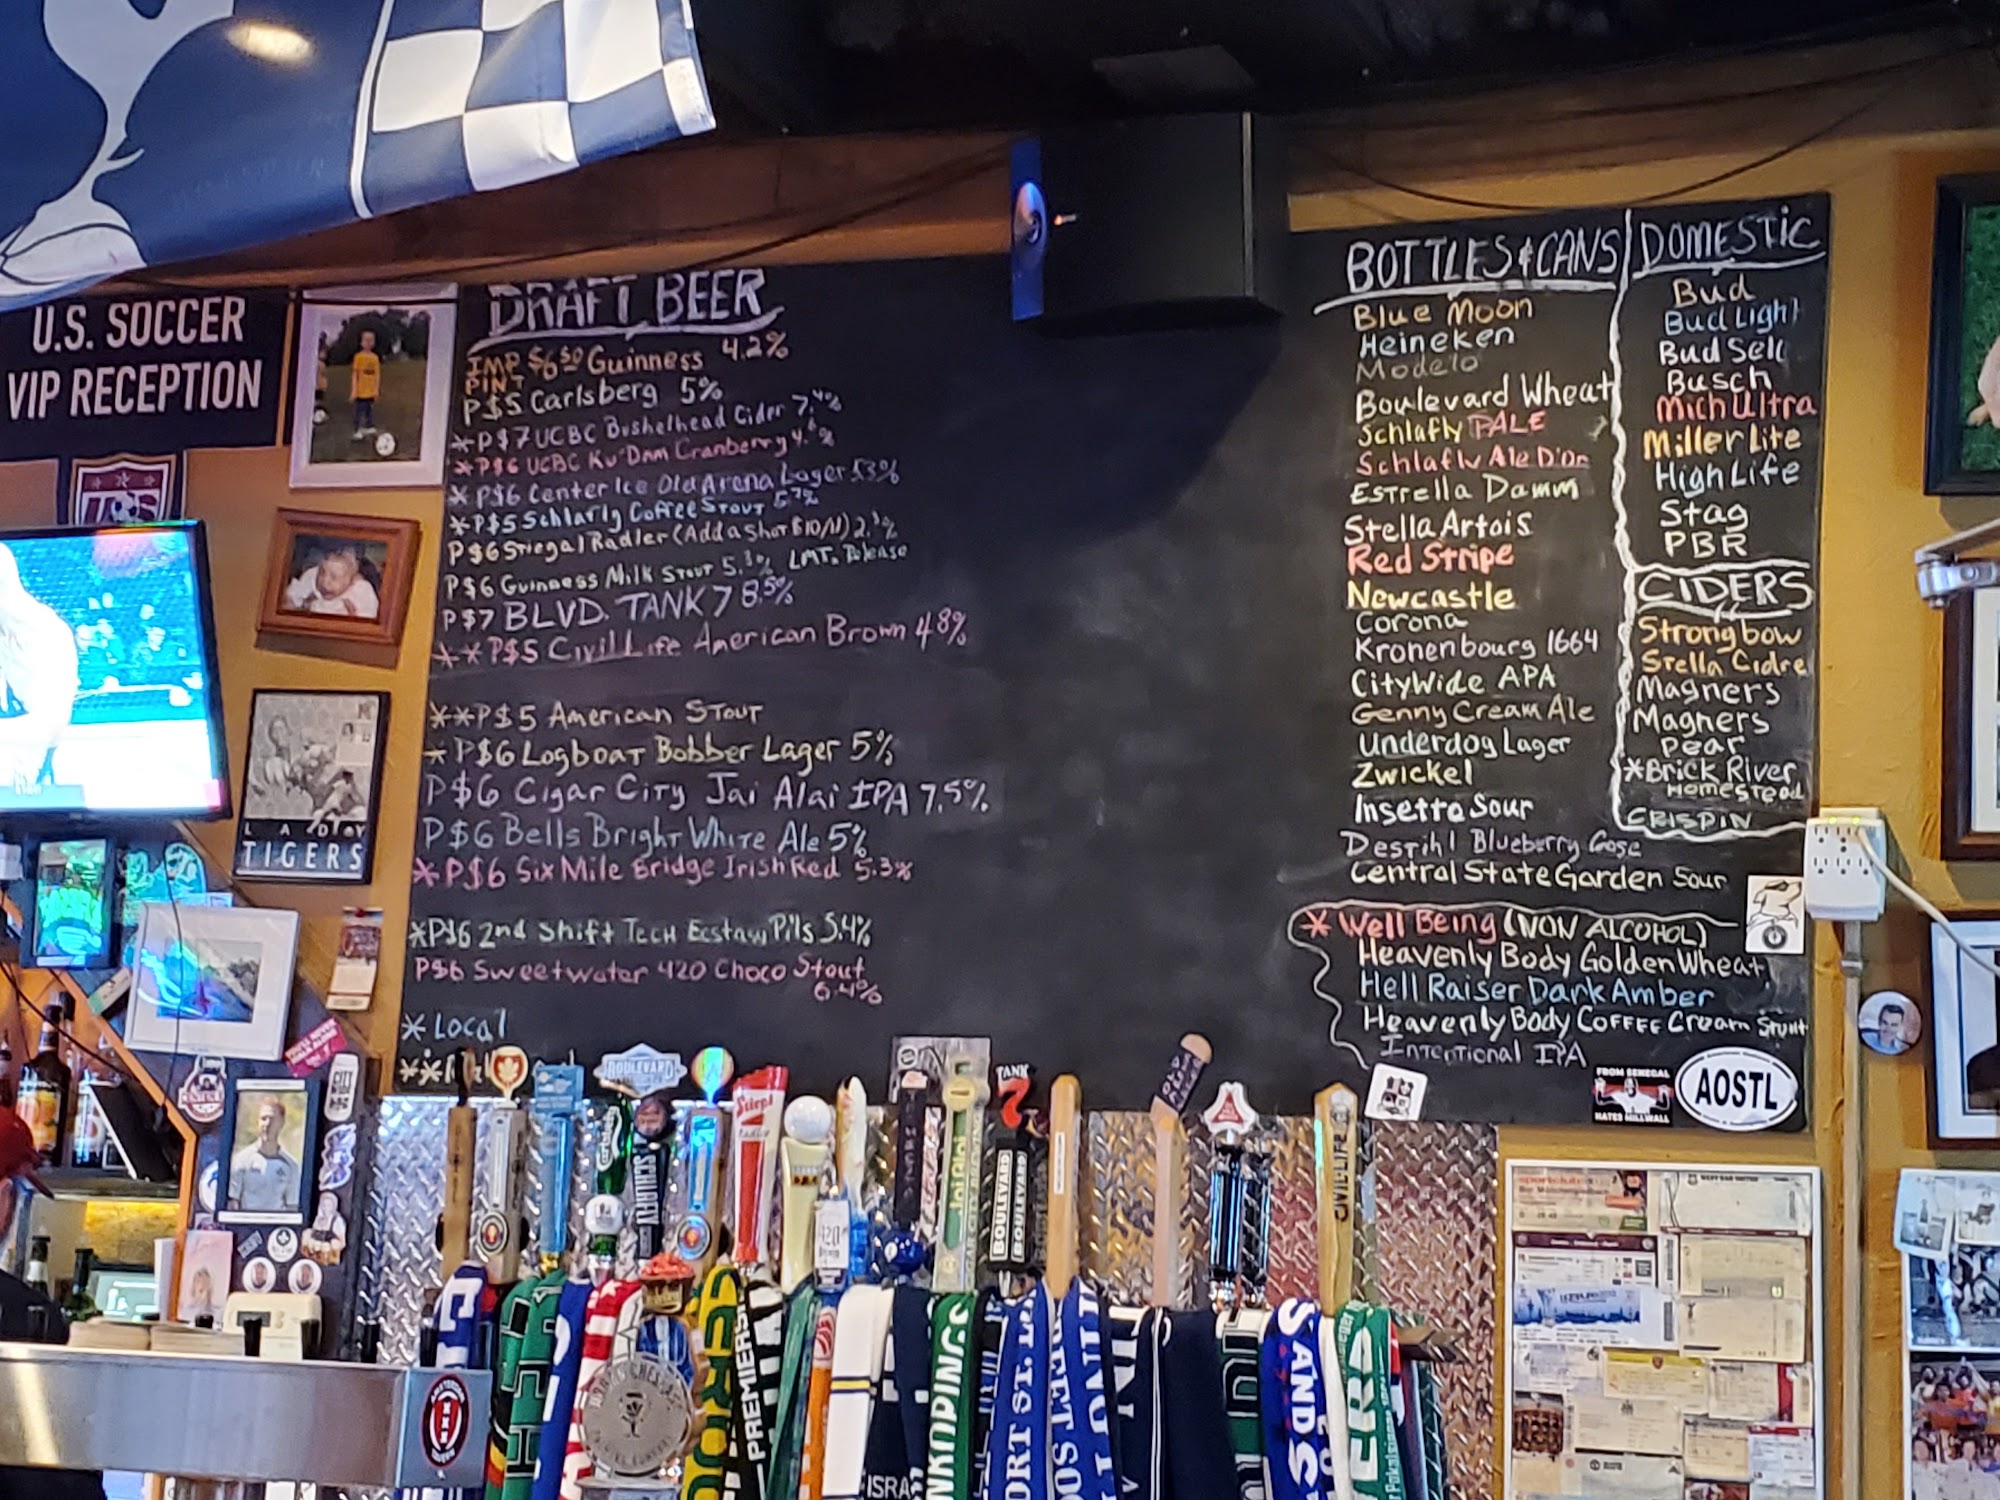 U.S. SOCCER
VIP RECEPTION
DRAFT BEER
IMP PINT $6.50 Guinness 4.2%
P$5 Carlsberg 5%
*P$7 UCBC Bushelhead Cider 7.4%
*P$6 UCBC Ku'Dam Cranberry 4.6%
*P$6 Center Ice Old Arena Lager 5.3%
*P$5 Schlafly Coffee Stout 5.7%
P$6 Stiegal Radler (Add a Shot $10/11) 2.%
P$6 Guinness Milk Stout 5.3% LMT. Release
P$7 BLVD. TANK 7 8.5%
**P$5 Civil Life American Brown 4.8%
**P$5 American Stout
*P$6 Logboat Bobber Lager 5%
P$6 Cigar City Jai Alai IPA 7.5%
P$6 Bells Bright White Ale 5%
*P$6 Six Mile Bridge Irish Red 5.3%
*P$6 2nd Shift Tech Ecstasy Pils 5.4%
P$6 Sweetwater 420 Choco Stout
6.4%
* Local
**
BOTTLES & CANS
Blue Moon
Heineken
Modelo
Boulevard Wheat
Schlafly PALE
Schlafly Ale D'Or
Estrella Damm
Stella Artois
Red Stripe
Newcastle
Corona
Kronenbourg 1664
CityWide APA
Genny Cream Ale
Underdog Lager
Zwickel
Insetto Sour
Destihl Blueberry Gose
Central State Garden Sour
DOMESTIC
Bud
Bud Light
Bud Sel
Busch
Mich Ultra
Miller Lite
High Life
Stag
PBR
CIDERS
Strongbow
Stella Cidre
Magners
Magners
Pear
*Brick River
Homestead
CRISPIN
* Well Being (NON ALCOHOL)
Heavenly Body Golden Wheat
Hell Raiser Dark Amber
Heavenly Body Coffee Cream Stout
Intentional IPA
FROM SENEGAL
HATES MILLWALL
AOSTL
LADY
TIGERS
BOULEVARD
TANK
7
Stiegl
Carlsberg
SCHLAFLY
420
Jai Alai
BOULEVARD
BOULEVARD
CIVIL LIFE
PREMIERS
ISRA
NKÖPINGS
ORT ST. L
SAND
ERS